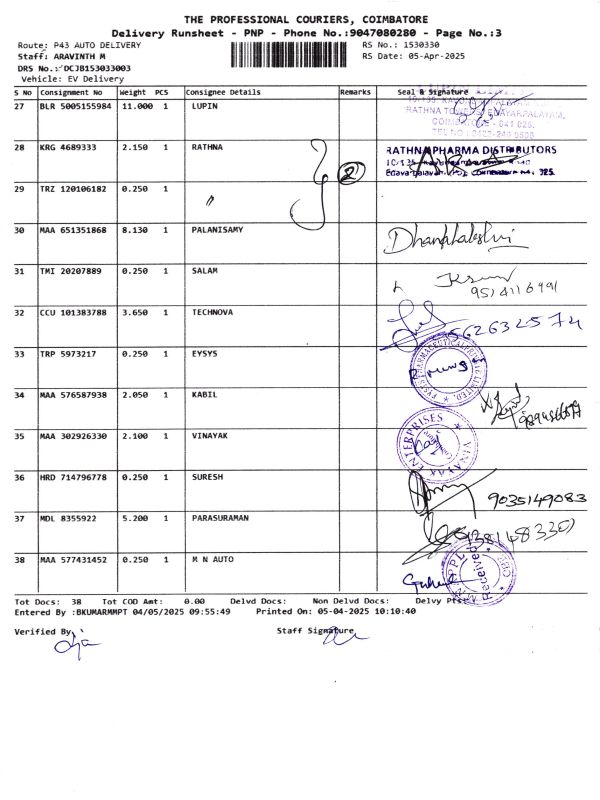 THE PROFESSIONAL COURIERS, COIMBATORE
Delivery Runsheet - PNP - Phone No.:9047080280 - Page No.:3
Route: P43 AUTO DELIVERY RS No.: 1530330
Staff: ARAVINTH M RS Date: 05-Apr-2025
DRS No.: DCJB153033003
Vehicle: EV Delivery
S No Consignment No Weight PCS Consignee Details Remarks Seal & Signature
27 BLR 5005155984 11.000 1 LUPIN
COIMBATORE - 641 025.
28 KRG 4689333 2.150 1 RATHNA 2 RATHNA PHARMA DISTRIBUTORS
29 TRZ 120106182 0.250 1 "
30 MAA 651351868 8.130 1 PALANISAMY Dhanalakshmi
31 TMI 20207889 0.250 1 SALAM
32 CCU 101383788 3.650 1 TECHNOVA
33 TRP 5973217 0.250 1 EYSYS
34 MAA 576587938 2.050 1 KABIL
35 MAA 302926330 2.100 1 VINAYAK VINAYAK ENTERPRISES
36 HRD 714796778 0.250 1 SURESH 9035149083
37 MDL 8355922 5.200 1 PARASURAMAN
38 MAA 577431452 0.250 1 M N AUTO Received
Tot Docs: 38 Tot COD Amt: 0.00 Delvd Docs: Non Delvd Docs: Delvy Pts:
Entered By :BKUMARMMPT 04/05/2025 09:55:49 Printed On: 05-04-2025 10:10:40
Verified By: Staff Signature